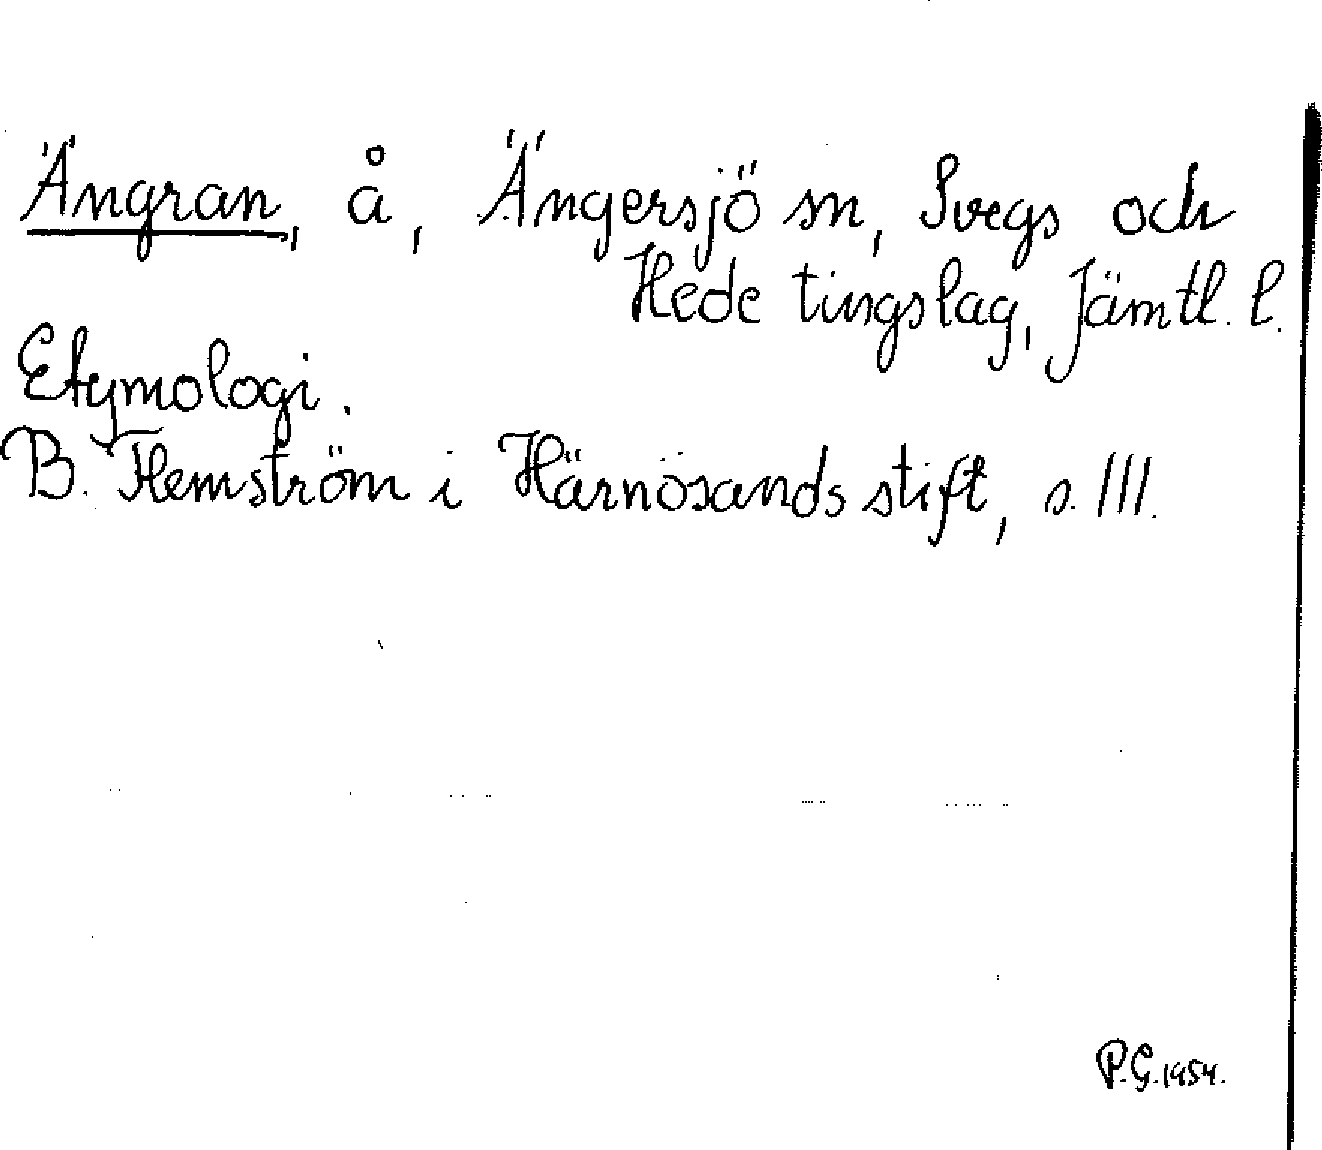 Ängran, å, Ängersjö sn, Svegs och
Hede tingslag, Jämtl. l.
Etymologi.
B. Hemström i Härnösands stift, s. 111.
P. G. 1954.